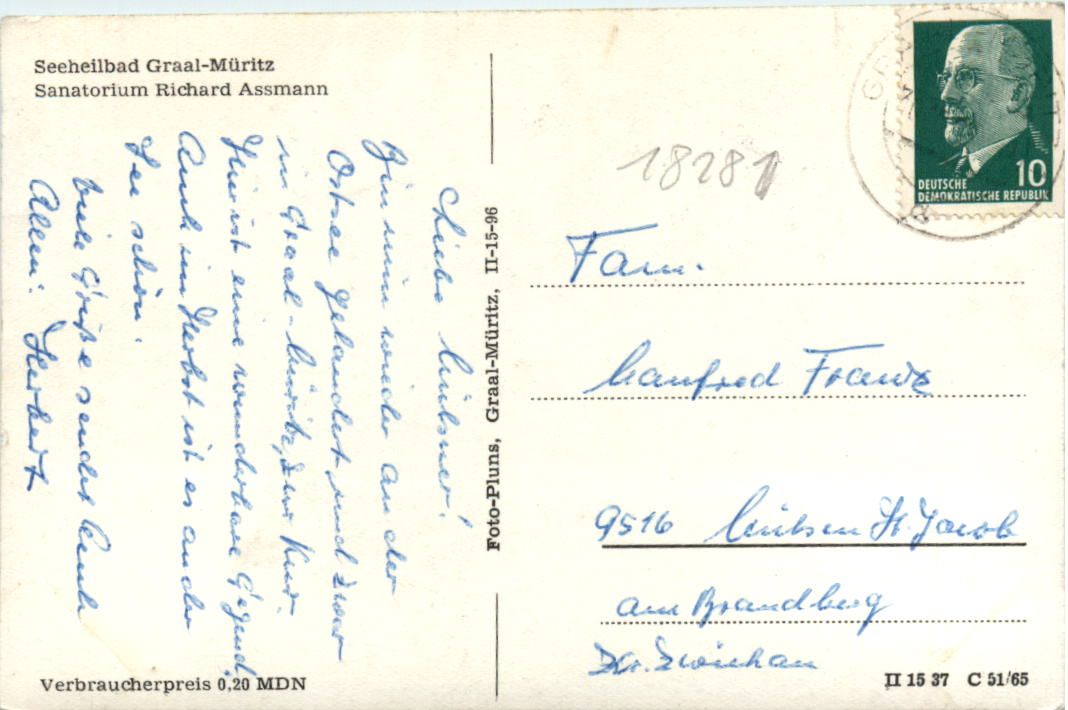 Seeheilbad Graal-Müritz
Sanatorium Richard Assmann
Liebe Mülsner!
Bin nun wieder an der
Ostsee gelandet, und zwar
in Graal-Müritz, zur Kur.
Hier ist eine wunderbare Gegend,
Auch im Herbst ist es an der
See schön.
Viele Grüße sendet Euch
Allen: Herbert
Verbraucherpreis 0,20 MDN
Foto-Pluns, Graal-Müritz, II-15-96
18281
10
DEUTSCHE
DEMOKRATISCHE REPUBLIK
Fam.
Manfred Franz
9516 Mülsen St. Jacob
am Brandberg
Kr. Zwickau
II 15 37 C 51/65